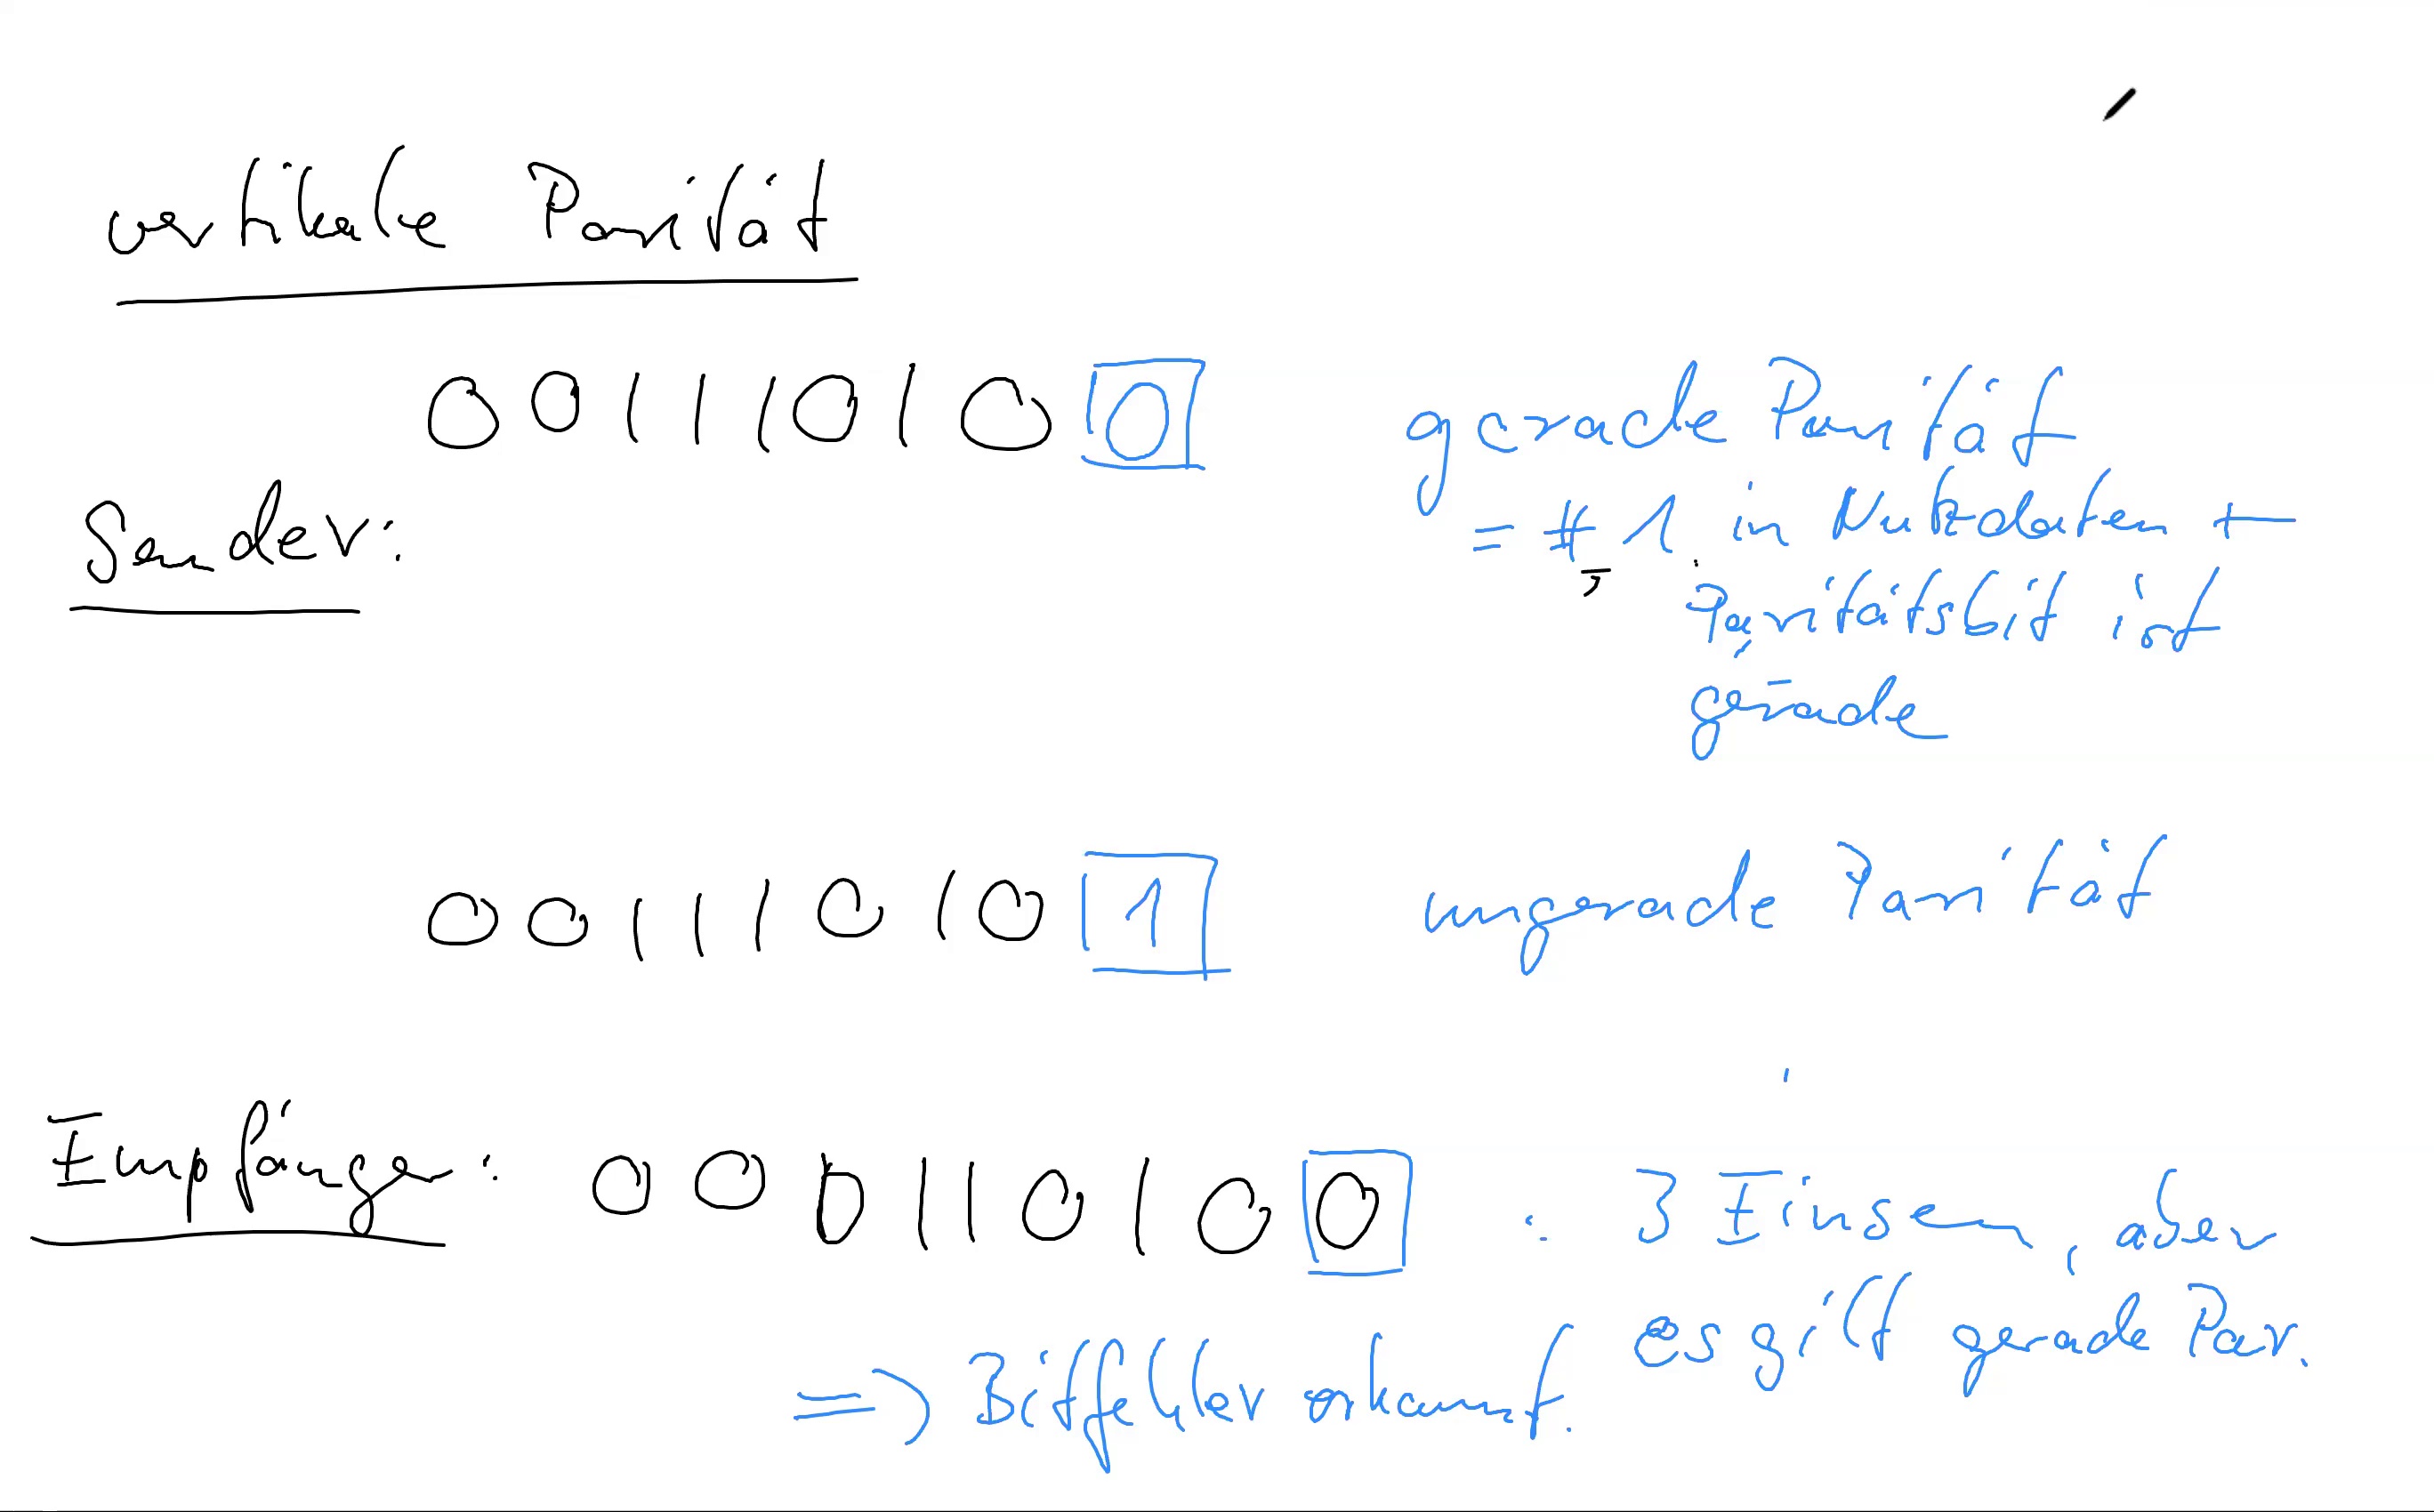 vertikale Parität
0 0 1 1 1 0 1 0 0 gerade Parität
Sender: = # 1 in Nutzdaten +
Paritätsbit ist
gerade
0 0 1 1 1 0 1 0 1 ungerade Parität
Empfänger: 0 0 0 1 1 0 1 0 0 : 3 Einsen, aber
es gilt gerade Par.
=> Bitfehler erkannt.